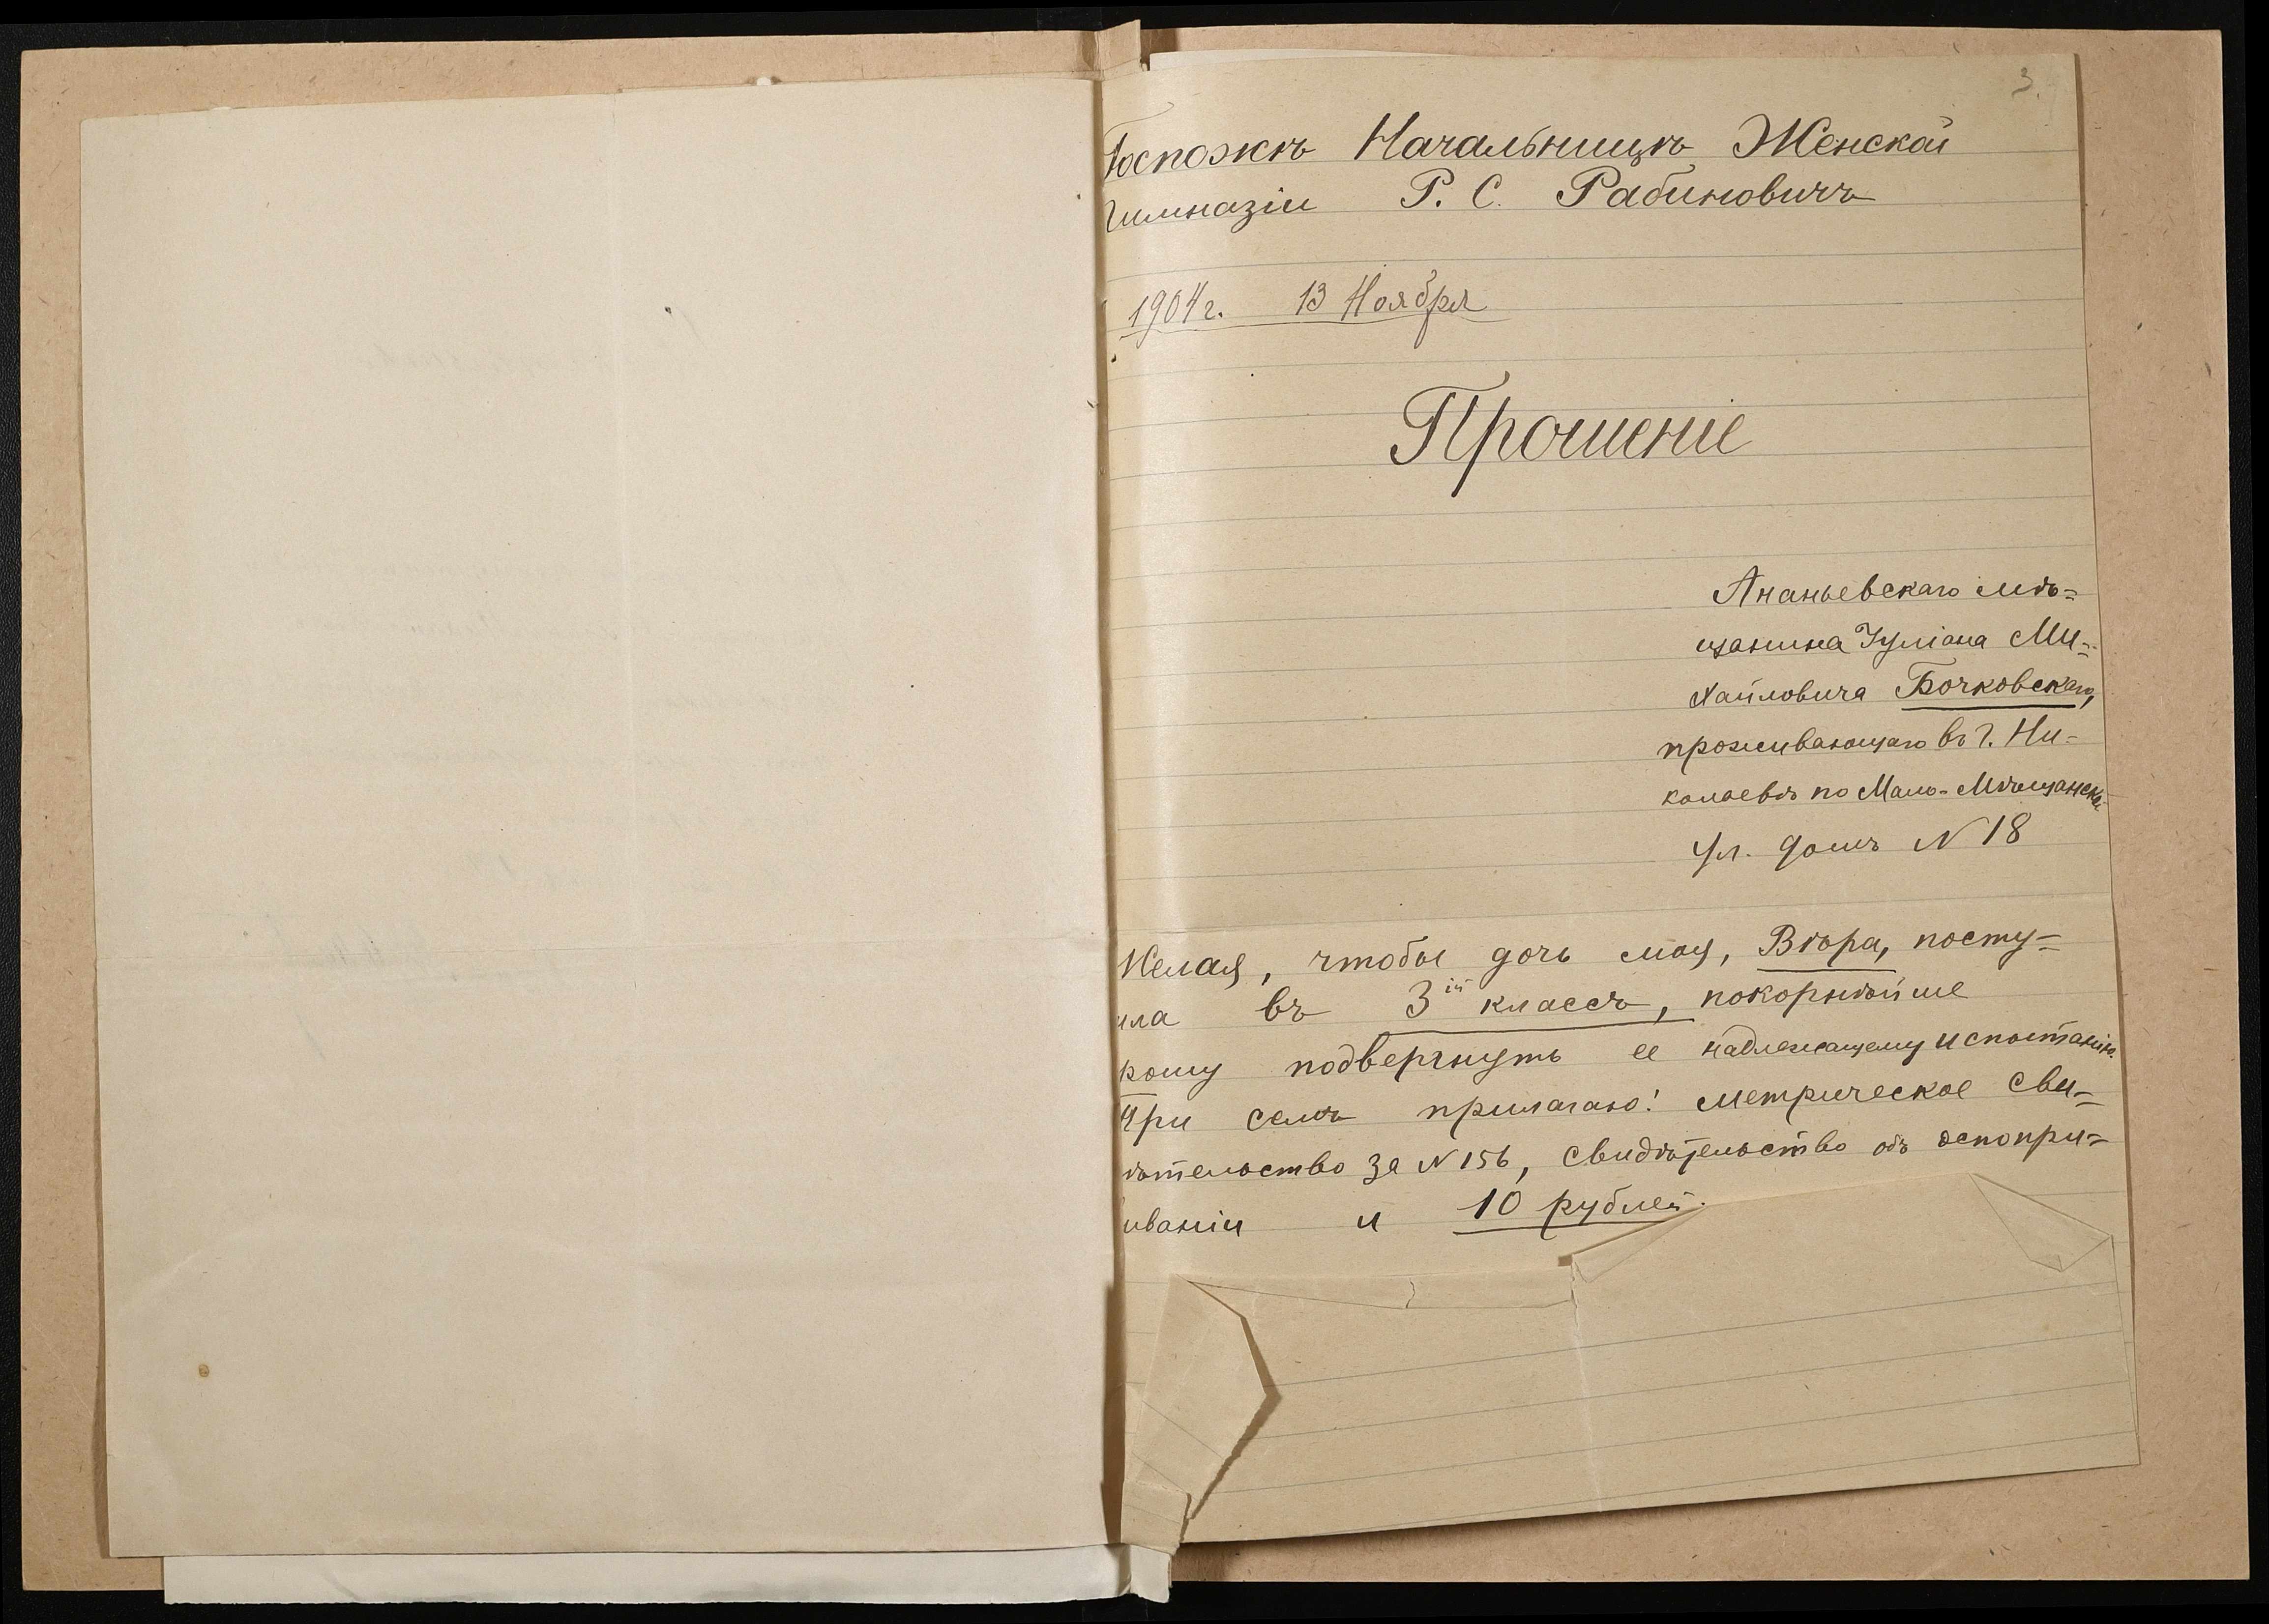 3.
Госпожѣ Начальницѣ Женской
Гимназіи Р. С. Рабиновичъ
1904 г. 13 Ноября
Прошеніе
Ананьевскаго мѣ=
щанина Іуліана Ми=
хайловича Бочковскаго,
проживающаго въ г. Ни=
колаевѣ по Мало-Мѣщанской
ул. домъ N 18
Желая, чтобы дочь моя, Вѣра, посту=
ила въ 3ій классъ, покорнѣйше
рошу подвергнуть ее надлежащему испытанію.
При семъ прилагаю: метрическое сви=
ѣтельство за N 156, свидѣтельство объ оспопри=
иваніи и 10 рублей.